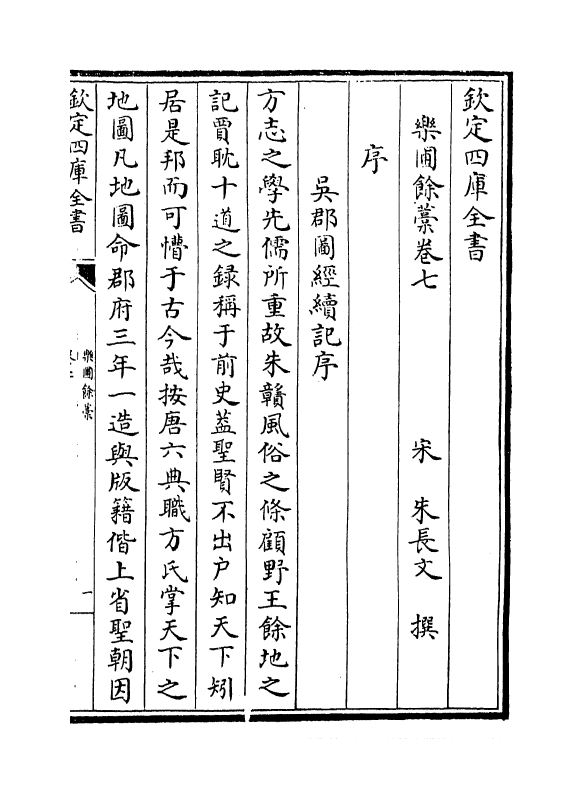 欽定四庫全書
樂圃餘藁卷七
宋 朱長文 撰
序
吳郡圖經續記序
方志之學先儒所重故朱贛風俗之條顧野王餘地之
記賈耽十道之録稱于前史葢聖賢不出户知天下矧
居是邦而可懵于古今哉按唐六典職方氏掌天下之
地圖凡地圖命郡府三年一造與版籍偕上省聖朝因
欽定四庫全書
樂圃餘藁
一